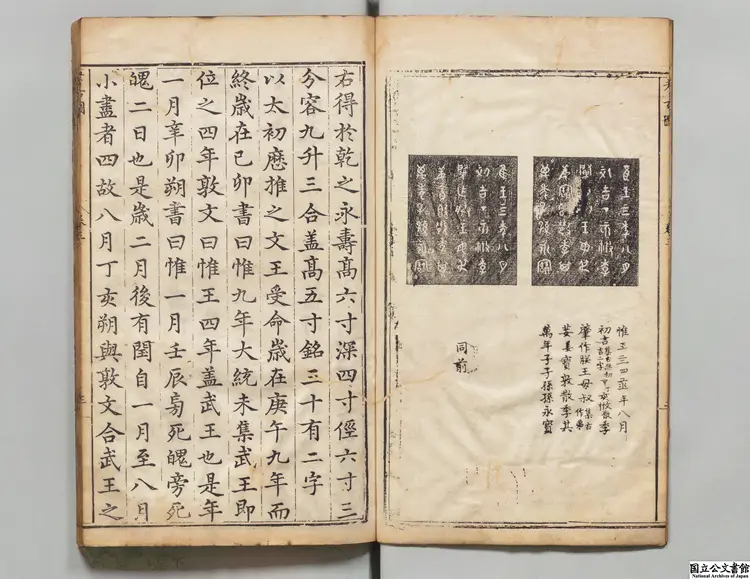 惟王三四年八月
初吉丁亥散季
肇作朕王母叔
姜寶敦散季其
萬年子子孫孫永寶
同前
右得於乾之永壽髙六寸深四寸徑六寸三
分容九升三合盖髙五寸銘三十有二字
以太初厯推之文王受命歳在庚午九年而
終歳在己卯書曰惟九年大統未集武王即
位之四年敦文曰惟王四年盖武王也是年
一月辛卯朔書曰惟一月壬辰旁死魄旁死
魄二日也是歳二月後有閏自一月至八月
小盡者四故八月丁亥朔與敦文合武王之
国立公文書館
National Archives of Japan